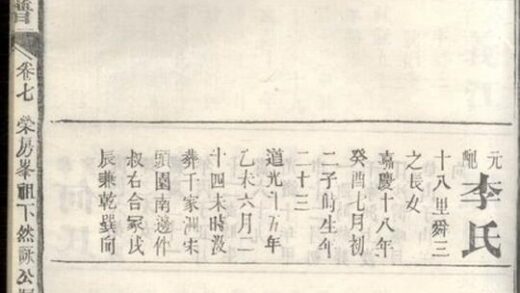 元配李氏
十八里舜三
之長女
嘉慶十八年
癸酉七月初
二子时生年
二十三
道光十五年
乙未六月二
十四未時歿
葬千家洲宋
頭園南邊件
叔右合冢戌
辰兼乾巽向
譜
卷七
榮房峯祖下然公